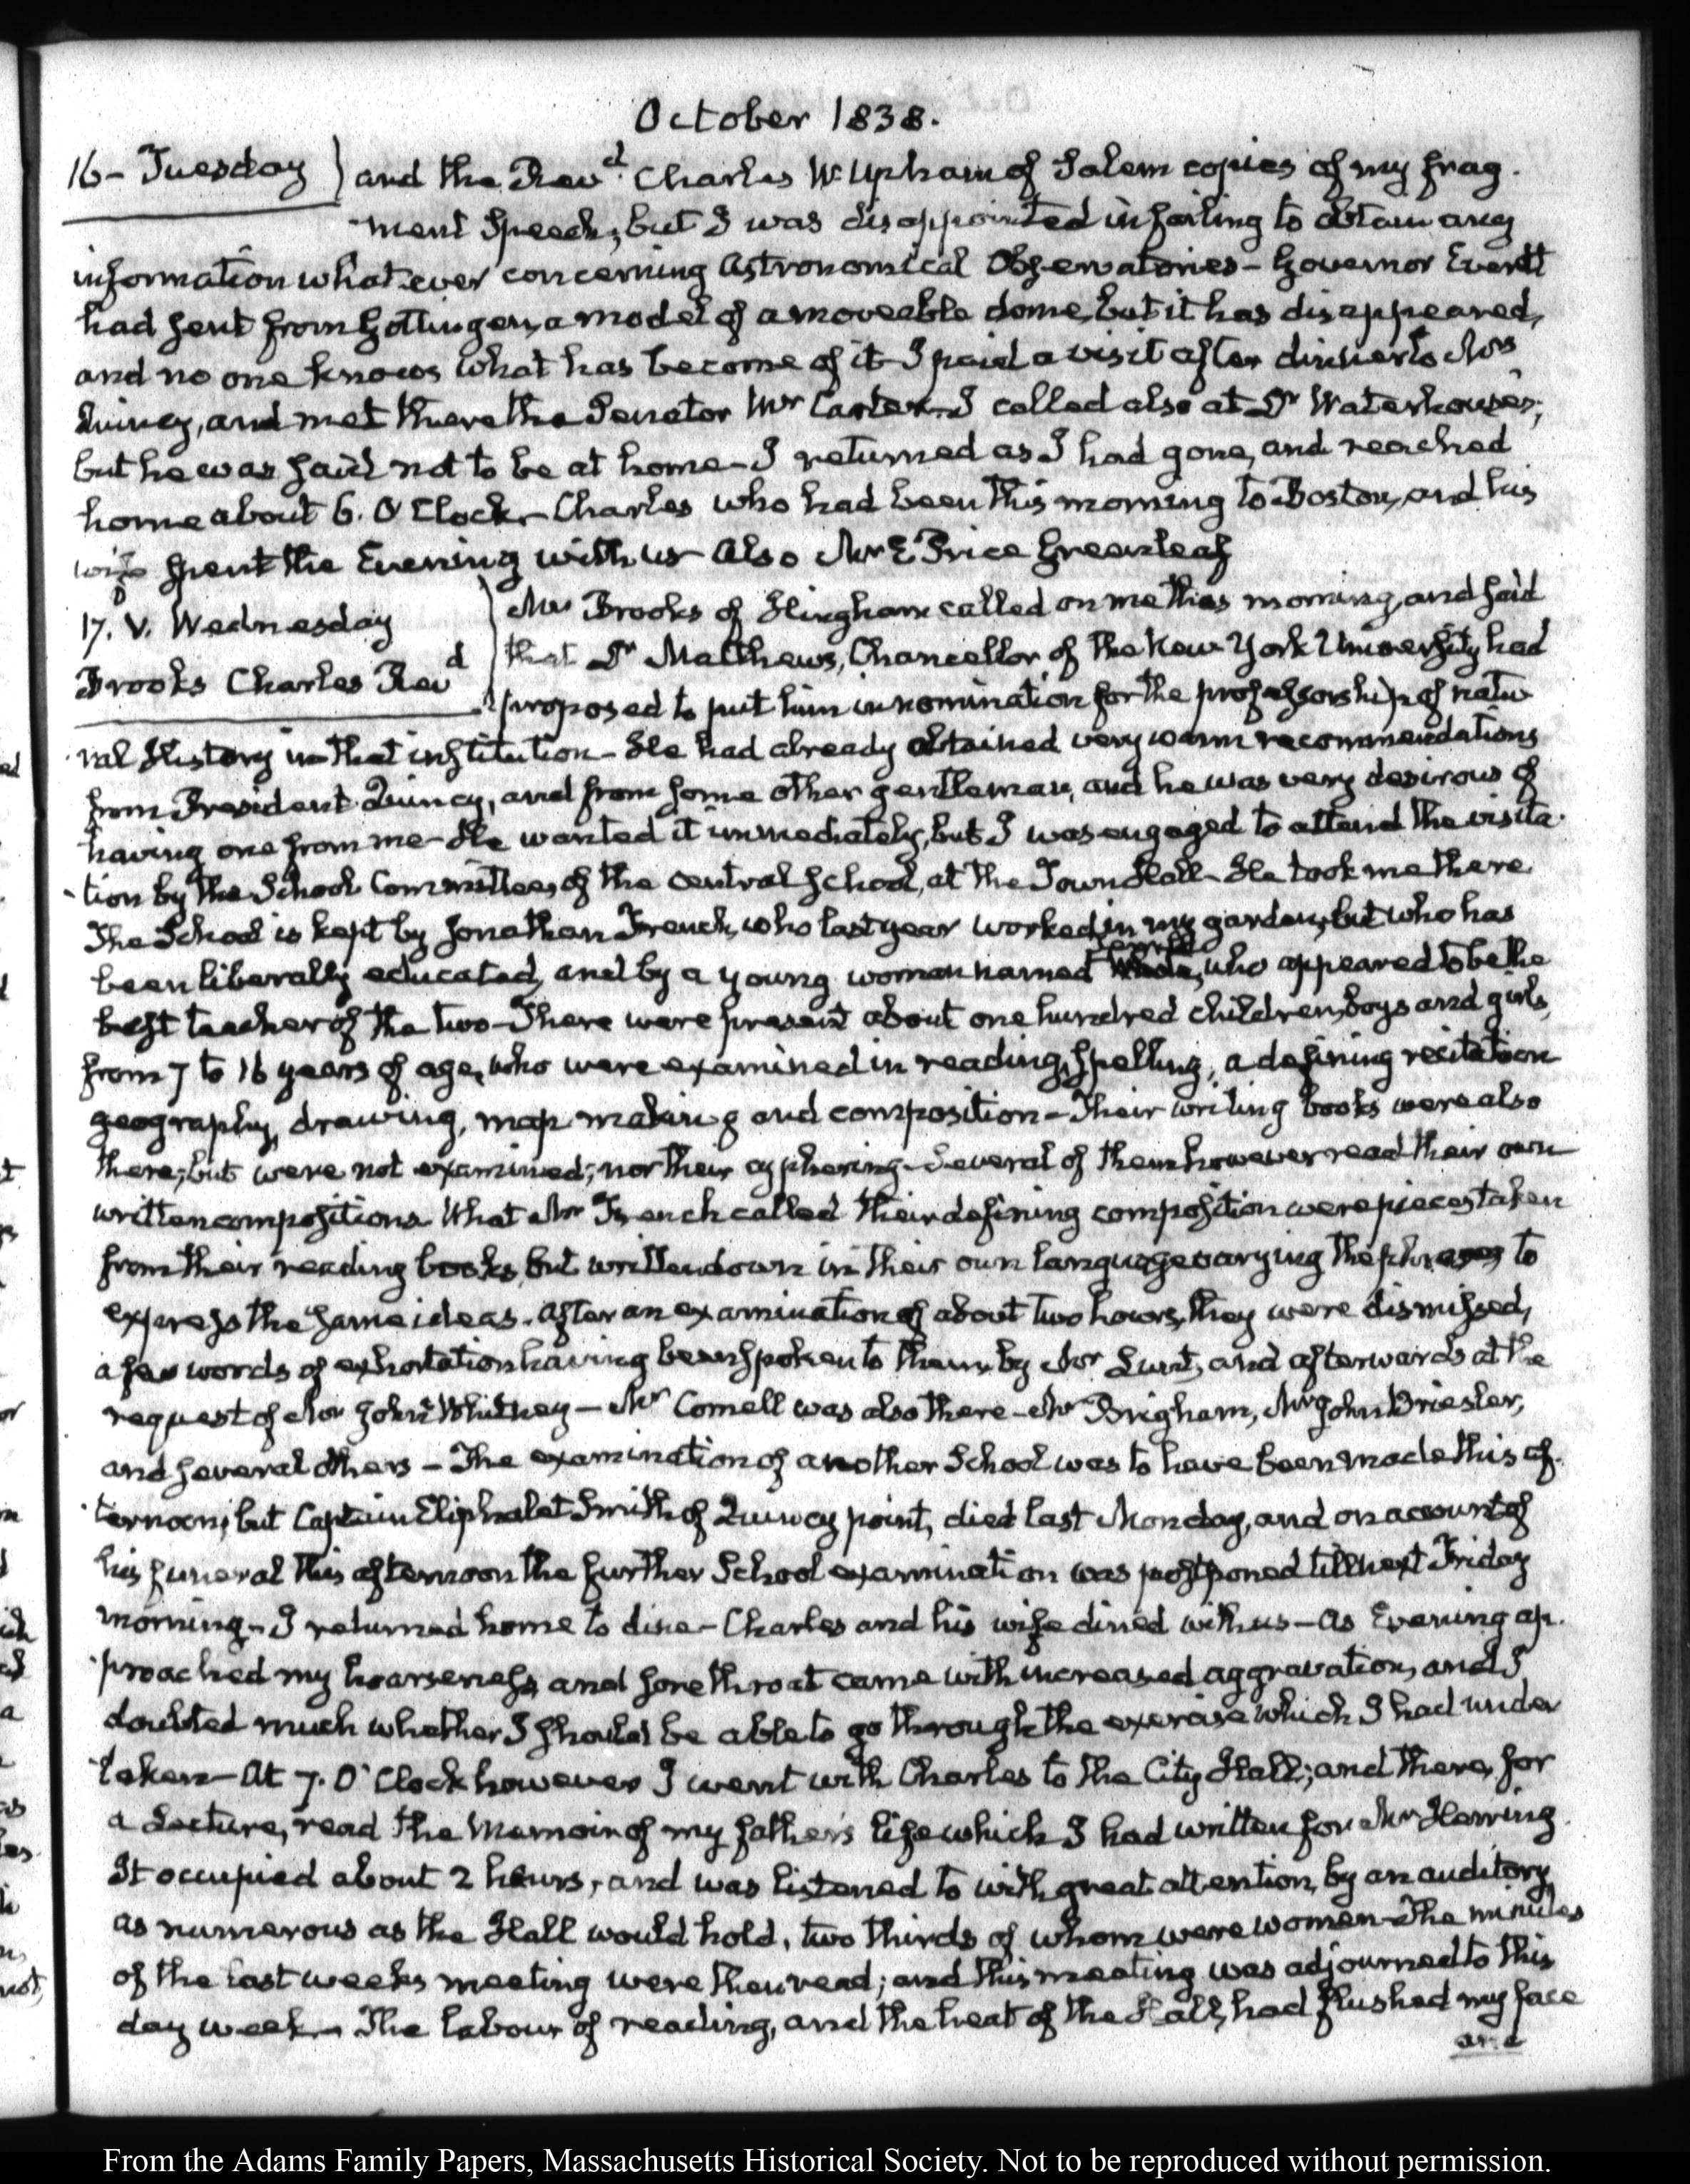 October 1838.
16 - Tuesday } and the Revd. Charles W. Upham of Salem copies of my frag-
-ment Speech; but I was disappointed in failing to obtain any
information whatever concerning Astronomical Observatories - Governor Everett
had sent from Gottingen, a model of a moveable dome, but it has disappeared,
and no one knows what has become of it - I paid a visit after dinner to Mrs
Quincy, and met there the Senator Mr Carter. I called also at Dr Waterhouse's;
but he was said not to be at home - I returned as I had gone, and reached
home about 6. O'Clock - Charles who had been this morning to Boston, and his
wife spent the Evening with us - Also Mr E Price Greenleaf
17. V. Wednesday } Mr Brooks of Hingham called on me this morning, and said
that Dr Matthews, Chancellor of the New York University had
Brooks Charles Revd
proposed to put him in nomination for the professorship of natu-
-ral History in that institution - He had already obtained very warm recommendations
from President Quincy, and from some other gentleman, and he was very desirous of
having one from me - He wanted it immediately, but I was engaged to attend the visita-
-tion by the School Committee, of the central School, at the Town Hall - He took me there
The School is kept by Jonathan French, who last year worked in my garden, but who has
been liberally educated, and by a young woman named who appeared to be the
best teacher of the two - There were present about one hundred children, boys and girls,
from 7 to 16 years of age, who were examined in reading, spelling, a defining recitation
geography, drawing, map making and composition - Their writing books were also
there; but were not examined; nor their cyphering - Several of them however read their own
written compositions. What Mr French called their defining composition were pieces taken
from their reading books, but written down in their own language varying the phrases to
express the same ideas. After an examination of about two hours, they were dismissed,
a few words of exhortation having been spoken to them, by Mr Lunt, and afterwards at the
request of Mr John Whitney - Mr Cornell was also there - Mr Brigham, Mrs John Briesler,
and several others - The examination of another School was to have been made this af-
-ternoon; but Captain Eliphalet Smith of Quincy point, died last Monday, and on account of
his funeral this afternoon the further School examination was postponed till next Friday
morning - I returned home to dine - Charles and his wife dined with us - As Evening ap-
-proached my hoarseness and sore throat came with increased aggravation, and I
doubted much whether I should be able to go through the exercise which I had under
-taken - At 7. O'Clock however I went with Charles to the City Hall; and there, for
a Lecture, read the Memoir of my father's life which I had written for Mr Herring
It occupied about 2 hours, and was listened to with great attention, by an auditory
as numerous as the Hall would hold, two thirds of whom were women - The minutes
of the last weeks meeting were then read; and this meeting was adjourned to this
day week - The labour of reading, and the heat of the Hall, had flushed my face
and
From the Adams Family Papers, Massachusetts Historical Society. Not to be reproduced without permission.